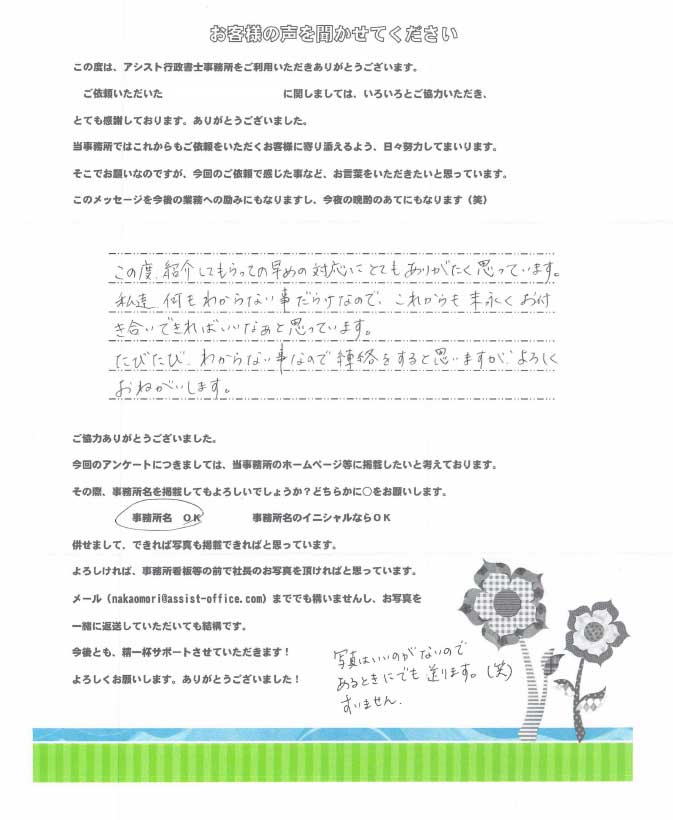 お客様の声を聞かせてください
この度は、アシスト行政書士事務所をご利用いただきありがとうございます。
ご依頼いただいた に関しましては、いろいろとご協力いただき、
とても感謝しております。ありがとうございました。
当事務所ではこれからもご依頼をいただくお客様に寄り添えるよう、日々努力してまいります。
そこでお願いなのですが、今回のご依頼で感じた事など、お言葉をいただきたいと思っています。
このメッセージを今後の業務への励みにもなりますし、今夜の晩酌のあてにもなります（笑）
この度、紹介してもらっての早めの対応にとてもありがたく思っています。
私達、何もわからない事だらけなので、これからも末永くお付
き合いできればいいなぁと思っています。
たびたび、わからない事なので連絡をすると思いますが、よろしく
おねがいします。
ご協力ありがとうございました。
今回のアンケートにつきましては、当事務所のホームページ等に掲載したいと考えております。
その際、事務所名を掲載してもよろしいでしょうか？どちらかに○をお願いします。
事務所名 OK 事務所名のイニシャルならOK
併せまして、できれば写真も掲載できればと思っています。
よろしければ、事務所看板等の前で社長のお写真を頂ければと思っています。
メール（nakaomori@assist-office.com）まででも構いませんし、お写真を
一緒に返送していただいても結構です。
今後とも、精一杯サポートさせていただきます！
よろしくお願いします。ありがとうございました！
写真はいいのがないので
あるときにでも送ります。（笑）
すいません.